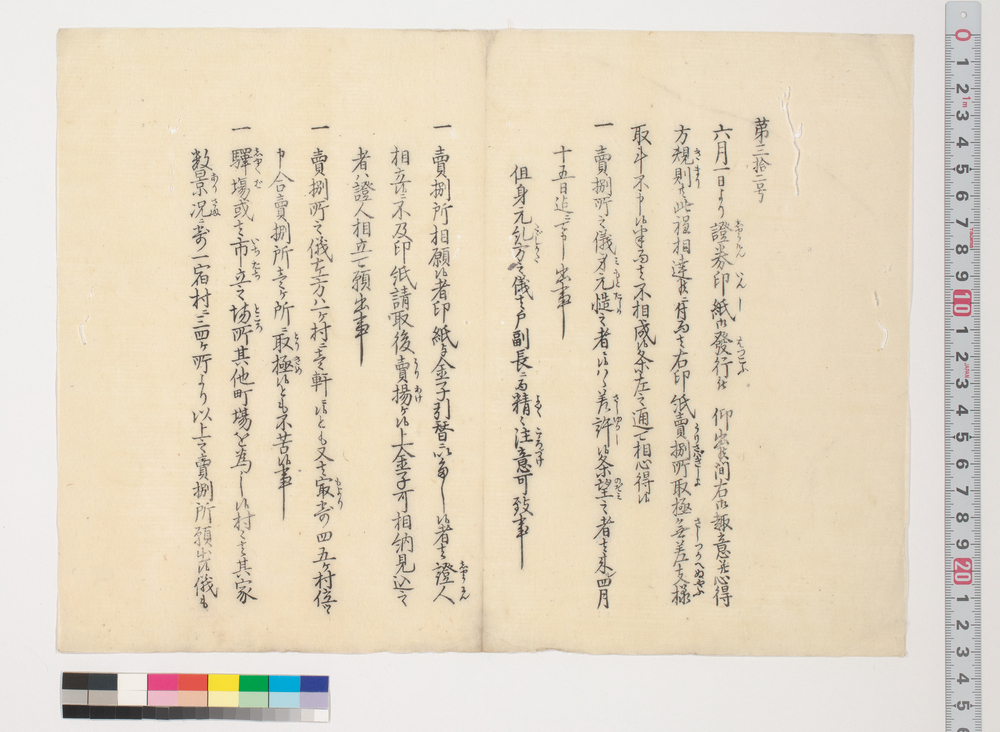 第三拾二号
六月一日より證券印紙御發行被 仰出候間右御趣意并心得
方規則等此程相達候ニ付而者右印紙賣捌所取極無差支様
取斗不申候半而者不相成候条左之通可相心得候
一 賣捌所之儀身元慥之者江ハ差許候条望之者者来四月
十五日迄ニ可申出事
但身元糺方之儀者戸副長ニ而精々注意可致事
一 賣捌所相願候者印紙与金子引替ニ以多し候者者證人
相立ニ不及印紙請取後賣揚ケ候上金子可相納見込之
者ハ證人相立可願出事
一 賣捌所之儀在方ハ一ケ村ニ壱軒候とも又者最寄四五ケ村
申合賣捌所壱ケ所ニ取極候とも不苦候事
一 驛場或者市立之場所其他町場を為し候村々者其家
数景况ニ寄一宿村ニ三四ケ所より以上之賣捌所願出候儀も